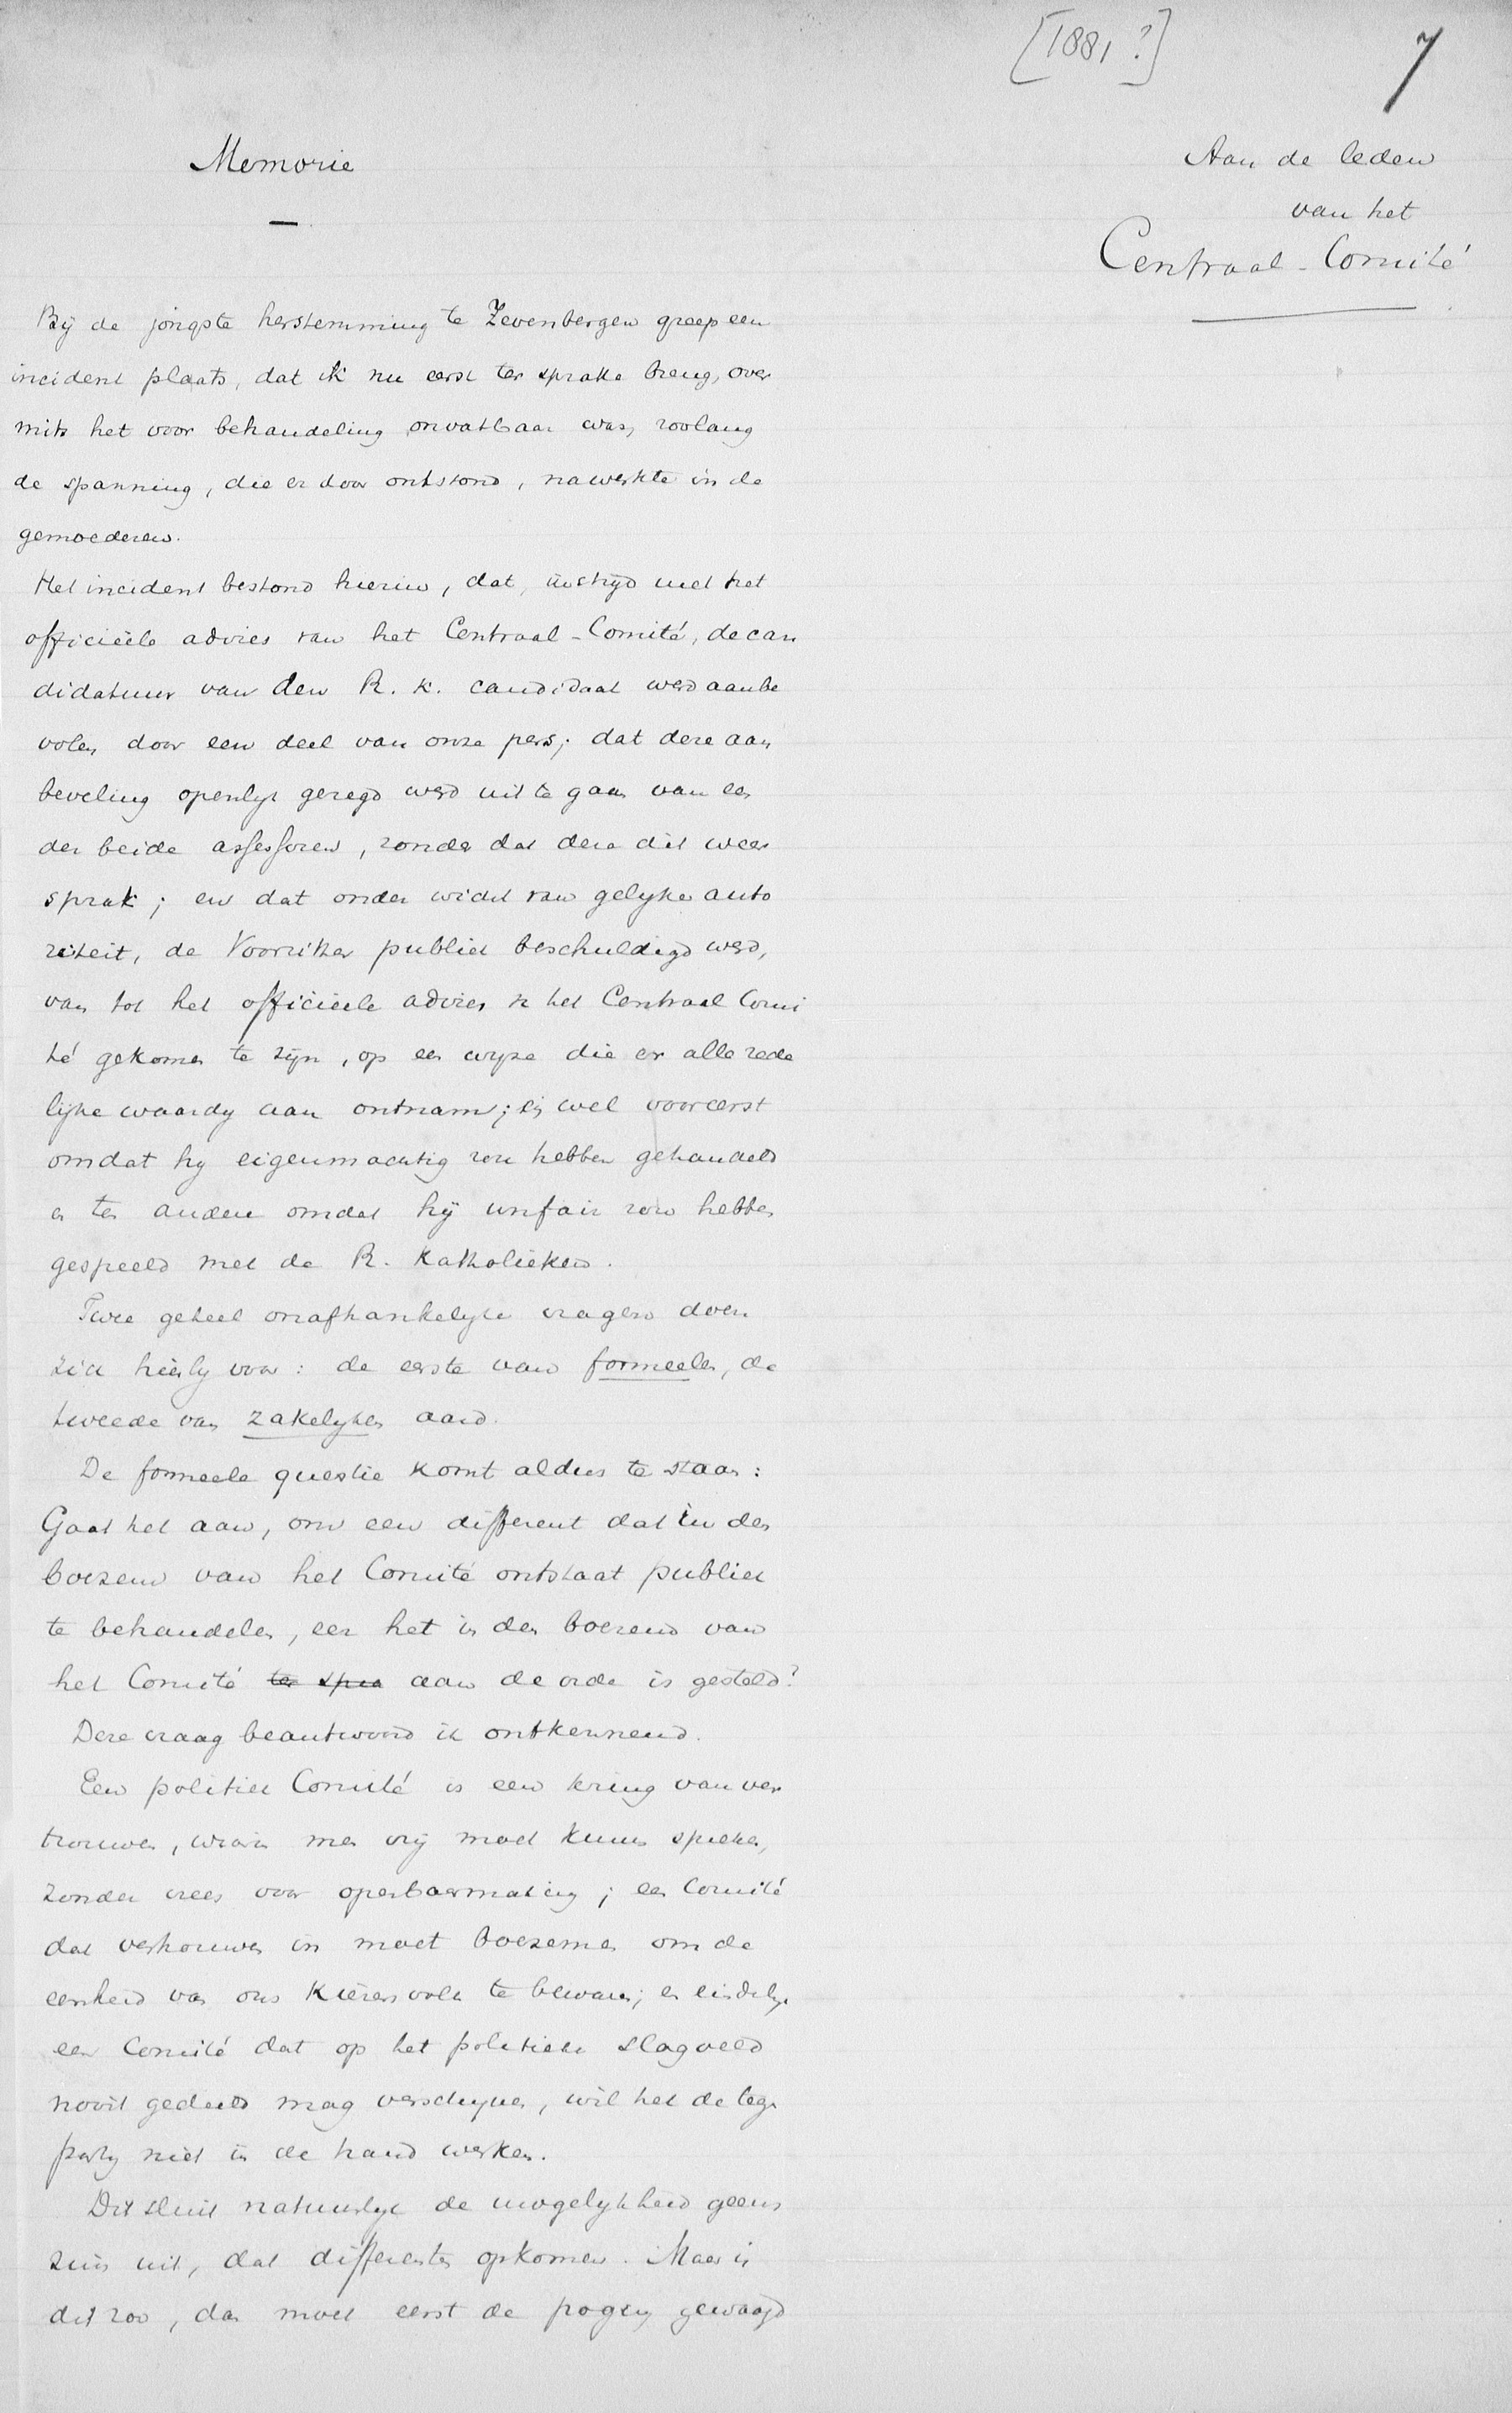 [1881?]
7
Memorie
Aan de leden
van het
Centraal-Comité
Bij de jongste herstemming te Zevenbergen greep een
incident plaats, dat ik nu eerst ter sprake breng, over
mits het voor behandeling onvatbaar was, zoolang
de spanning, die er door ontstond, nawerkte in de
gemoederen.
Het incident bestond hierin, dat, in strijd met het
officiëele advies van het Centraal-Comité, de can
didatuur van den R. K. candidaat werd aanbe
volen door een deel van onze pers; dat deze aan
beveling openlyk gezegd werd uit te gaan van een
der beide assessoren, zonder dat deze dit weer
sprak; en dat onder gelyke auto
riteit, de Voorzitter publiek beschuldigd werd,
van tot het officieele advies v het Centraal Comi
té gekomen te zijn, op een wyze die er alle rede
lijke waardy aan ontnam; en wel vooreerst
omdat hy eigenmachtig zou hebben gehandeld
en ten andere omdat hij unfair zou hebben
gespeeld met de R. Katholieken.
Twee geheel onafhankelyke vragen doen
zich hierby voor: de eerste van formeelen, de
tweede van zakelyken aard.
De formeele questie komt aldus te staan:
Gaat het aan, om een different dat in den
boezem van het Comité ontstaat publiek
te behandelen, eer het in den boezem van
het Comité ter spra aan de orde is gesteld?
Deze vraag beantwoord ik ontkennend.
Een politiek Comité is een kring van ver
trouwen, waarin men vrij moet kunnen spreken,
zonder vrees voor openbaarmaking; een Comité
dat vertrouwen in moet boezemen om de
eenheid van ons Kiezersvolk te bewaren; en eindelyk
een Comité dat op het politieke slagveld
nooit gedeeld mag verschynen, wil het de tegen
party niet in de hand werken.
Dit sluit natuurlyk de mogelykheid geens
zins uit, dat differenten opkomen. Maar is
dit zoo, dan moet eerst de poging gewaagd